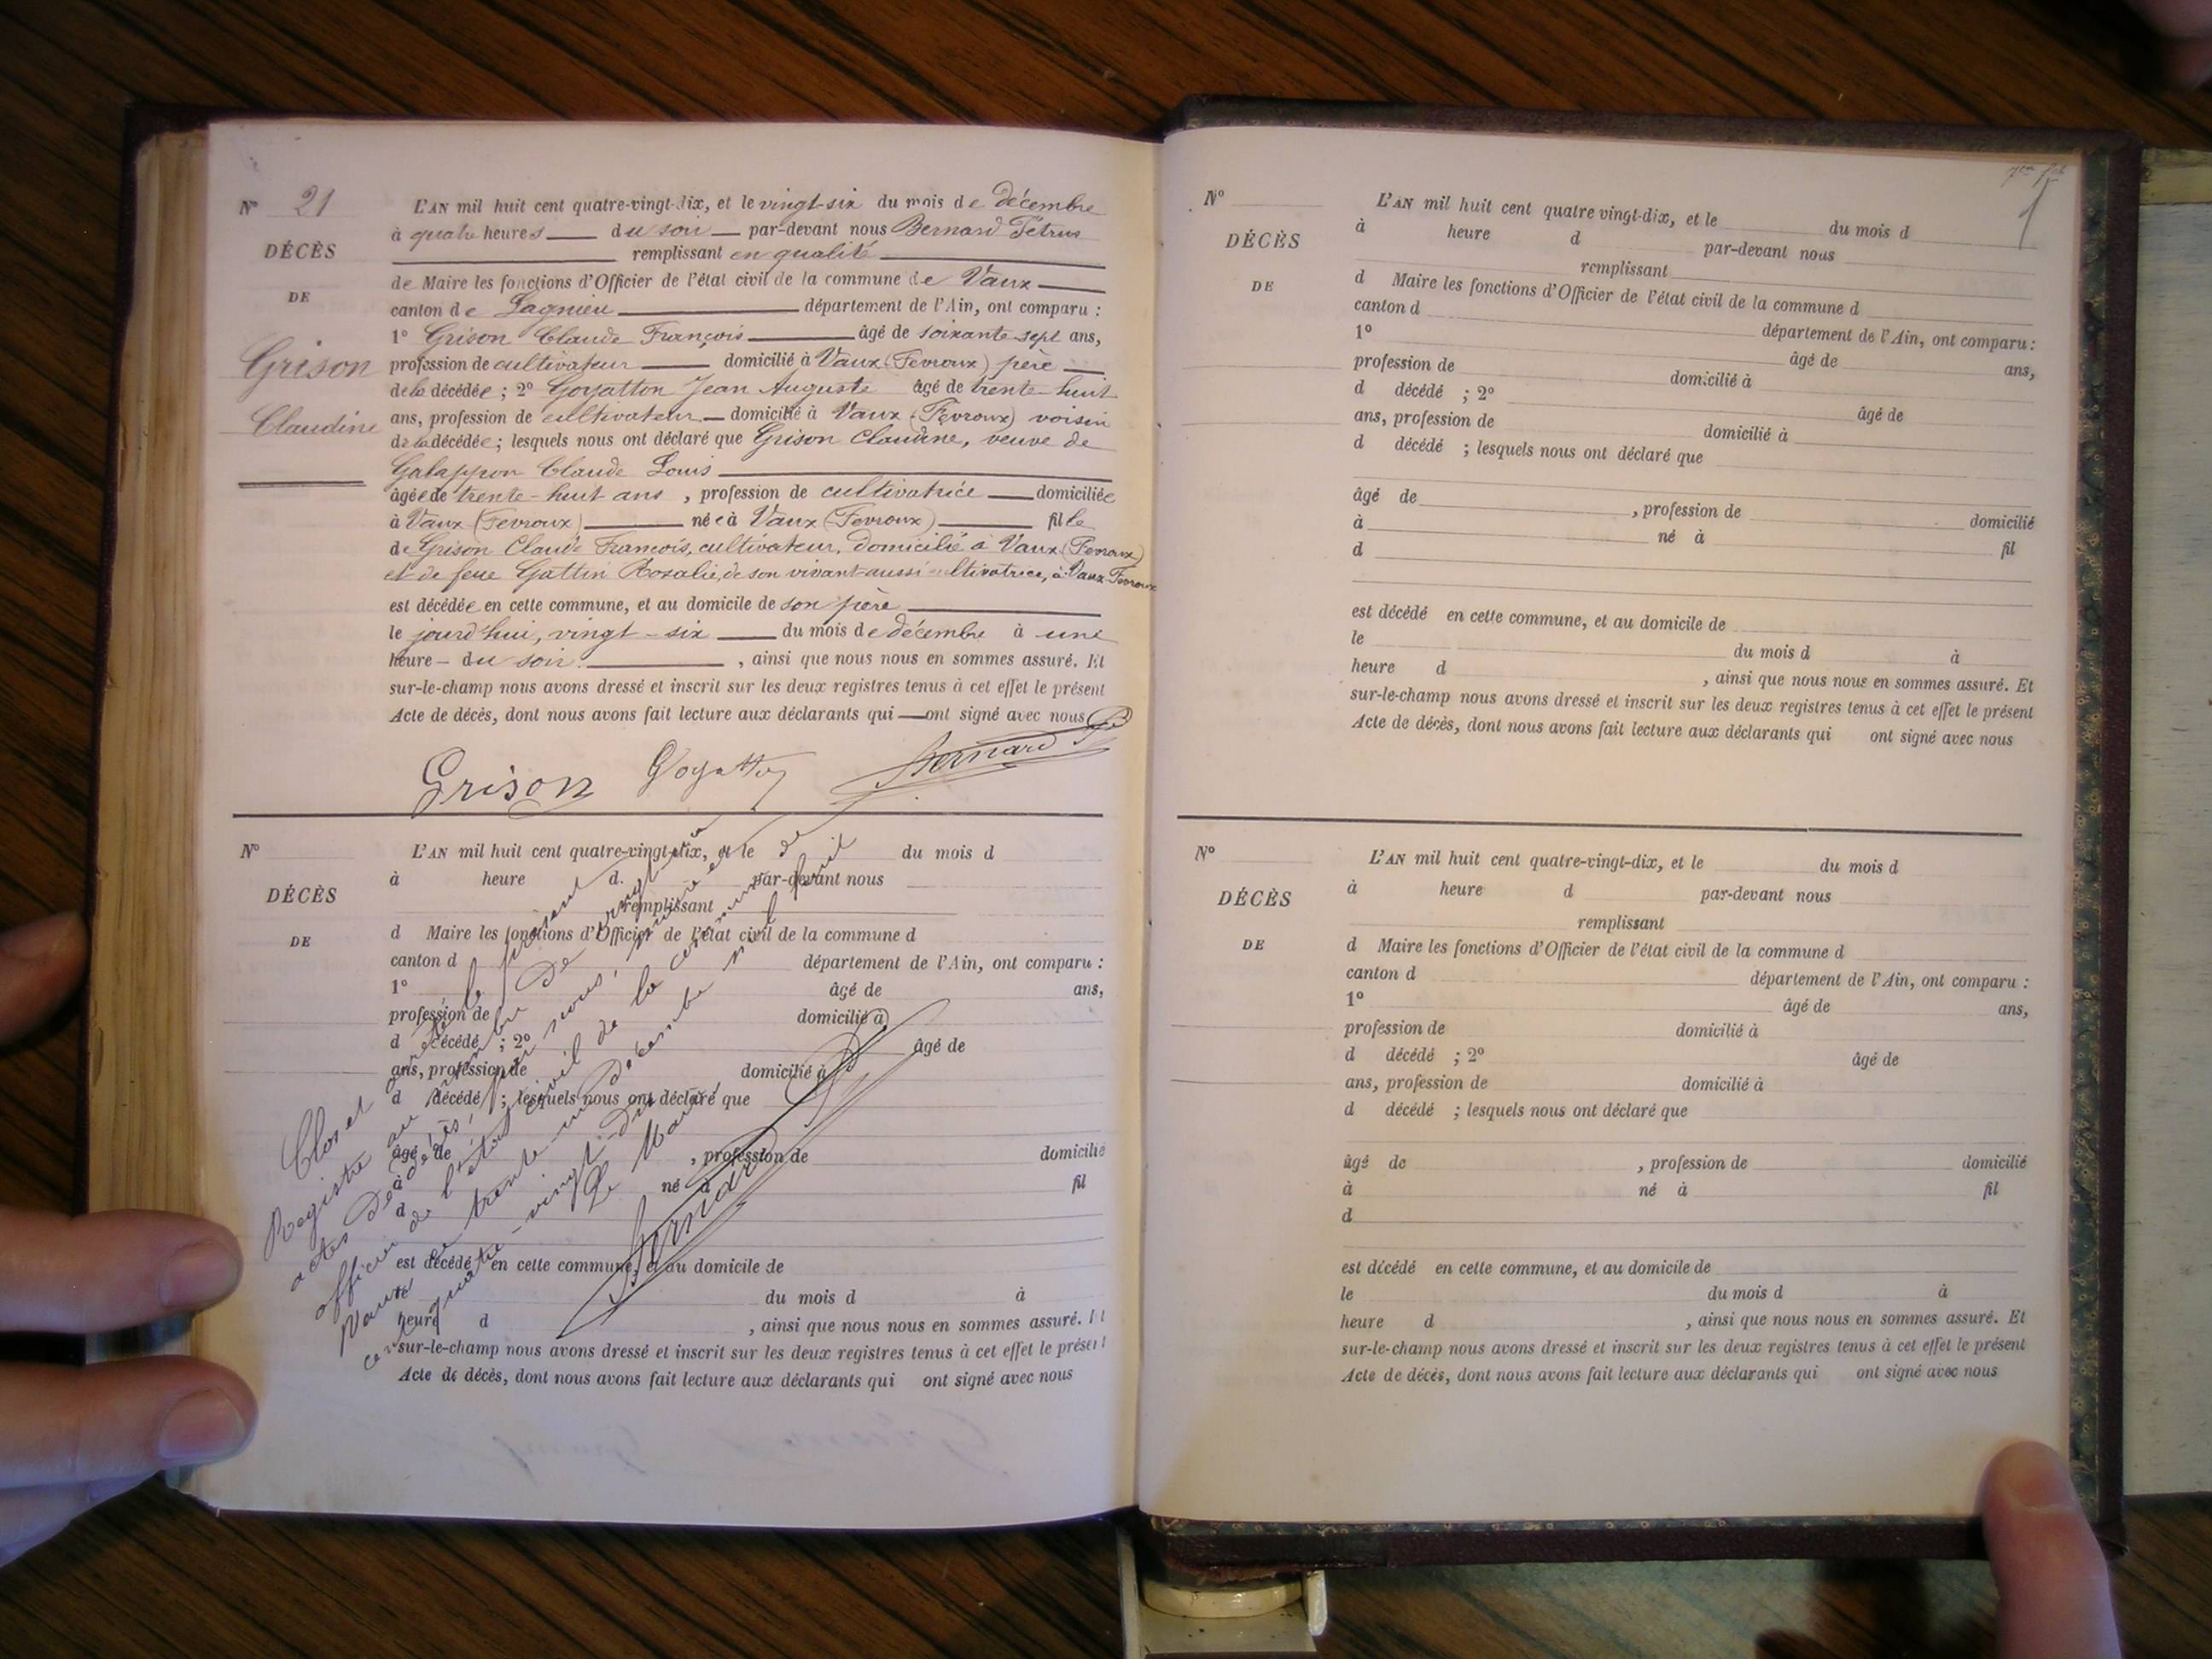 N° 21
DÉCÈS
DE
Grison
Claudine
L'AN mil huit cent quatre-vingt-dix, et le vingt-six du mois de décembre
à quatre heures du soir par-devant nous Bernard Pétrus
remplissant en qualité
de Maire les fonctions d'Officier de l'état civil de la commune de Vaux
canton de Lagnieu département de l'Ain, ont comparu :
1° Grison Claude François âgé de soixante-sept ans,
profession de cultivateur domicilié à Vaux (Fevroux) père
de la décédée ; 2° Goyatton Jean Auguste âgé de trente-huit
ans, profession de cultivateur domicilié à Vaux (Fevroux) voisin
de la décédée ; lesquels nous ont déclaré que Grison Claudine, veuve de
Galappon Claude Louis
âgée de trente-huit ans, profession de cultivatrice domiciliée
à Vaux (Fevroux) née à Vaux (Fevroux) fille
de Grison Claude François, cultivateur, domicilié à Vaux (Fevroux)
et de feue Gattin Rosalie, de son vivant aussi cultivatrice, à Vaux-Fevroux
est décédée en cette commune, et au domicile de son père
le jourd'hui, vingt-six du mois de décembre à une
heure du soir , ainsi que nous nous en sommes assuré. Et
sur-le-champ nous avons dressé et inscrit sur les deux registres tenus à cet effet le présent
Acte de décès, dont nous avons fait lecture aux déclarants qui ont signé avec nous
Grison Goyatton Bernard P
N°
DÉCÈS
DE
L'AN mil huit cent quatre-vingt-dix, et le du mois d
à heure d. par-devant nous
remplissant
d Maire les fonctions d'Officier de l'état civil de la commune d
canton d département de l'Ain, ont comparu :
1° âgé de ans,
profession de domicilié à
d décédé ; 2° âgé de
ans, profession de domicilié à
d décédé ; lesquels nous ont déclaré que
âgé de , profession de domicilié
à né à fil
d
est décédé en cette commune, et au domicile de
le du mois d à
heure d , ainsi que nous nous en sommes assuré. Et
sur-le-champ nous avons dressé et inscrit sur les deux registres tenus à cet effet le présent
Acte de décès, dont nous avons fait lecture aux déclarants qui ont signé avec nous
Clos et arrêté le présent
Registre au nombre de vingt-un
actes de décès, par nous, maire et
officier de l'état civil de la commune de
Vaux ce trente-un décembre mil huit
cent quatre-vingt-dix
Le Maire
Bernard P
N°
DÉCÈS
DE
L'AN mil huit cent quatre vingt-dix, et le du mois d
à heure d par-devant nous
remplissant
d Maire les fonctions d'Officier de l'état civil de la commune d
canton d département de l'Ain, ont comparu :
1° âgé de ans,
profession de domicilié à
d décédé ; 2° âgé de
ans, profession de domicilié à
d décédé ; lesquels nous ont déclaré que
âgé de , profession de domicilié
à né à fil
d
est décédé en cette commune, et au domicile de
le du mois d à
heure d , ainsi que nous nous en sommes assuré. Et
sur-le-champ nous avons dressé et inscrit sur les deux registres tenus à cet effet le présent
Acte de décès, dont nous avons fait lecture aux déclarants qui ont signé avec nous
N°
DÉCÈS
DE
L'AN mil huit cent quatre-vingt-dix, et le du mois d
à heure d par-devant nous
remplissant
d Maire les fonctions d'Officier de l'état civil de la commune d
canton d département de l'Ain, ont comparu :
1° âgé de ans,
profession de domicilié à
d décédé ; 2° âgé de
ans, profession de domicilié à
d décédé ; lesquels nous ont déclaré que
âgé de , profession de domicilié
à né à fil
d
est décédé en cette commune, et au domicile de
le du mois d à
heure d , ainsi que nous nous en sommes assuré. Et
sur-le-champ nous avons dressé et inscrit sur les deux registres tenus à cet effet le présent
Acte de décès, dont nous avons fait lecture aux déclarants qui ont signé avec nous